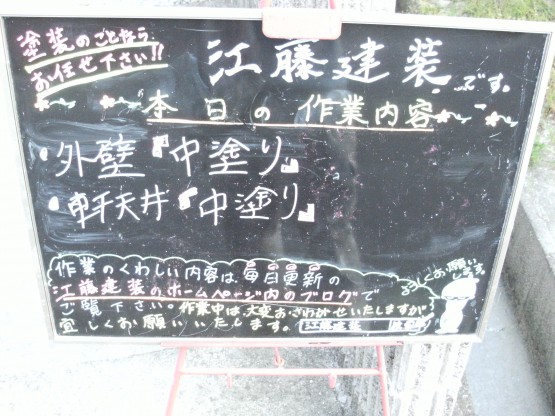 塗装のことなら
お任せ下さい!!
江藤建装です。
本日の作業内容
・外壁『中塗り』
・軒天井『中塗り』
作業のくわしい内容は、毎日更新の
江藤建装のホームページ内のブログで
ご覧下さい。作業中は大変おさわがせいたしますが、
宜しくお願いいたします。
江藤建装
お願い
します。